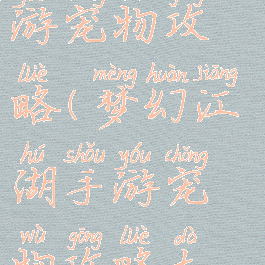 游宠物攻
lüè mèng huàn Jiāng
略(梦幻江
hú shǒu yóu chǒng
湖手游宠
wù gōng lüè dà
物攻略大